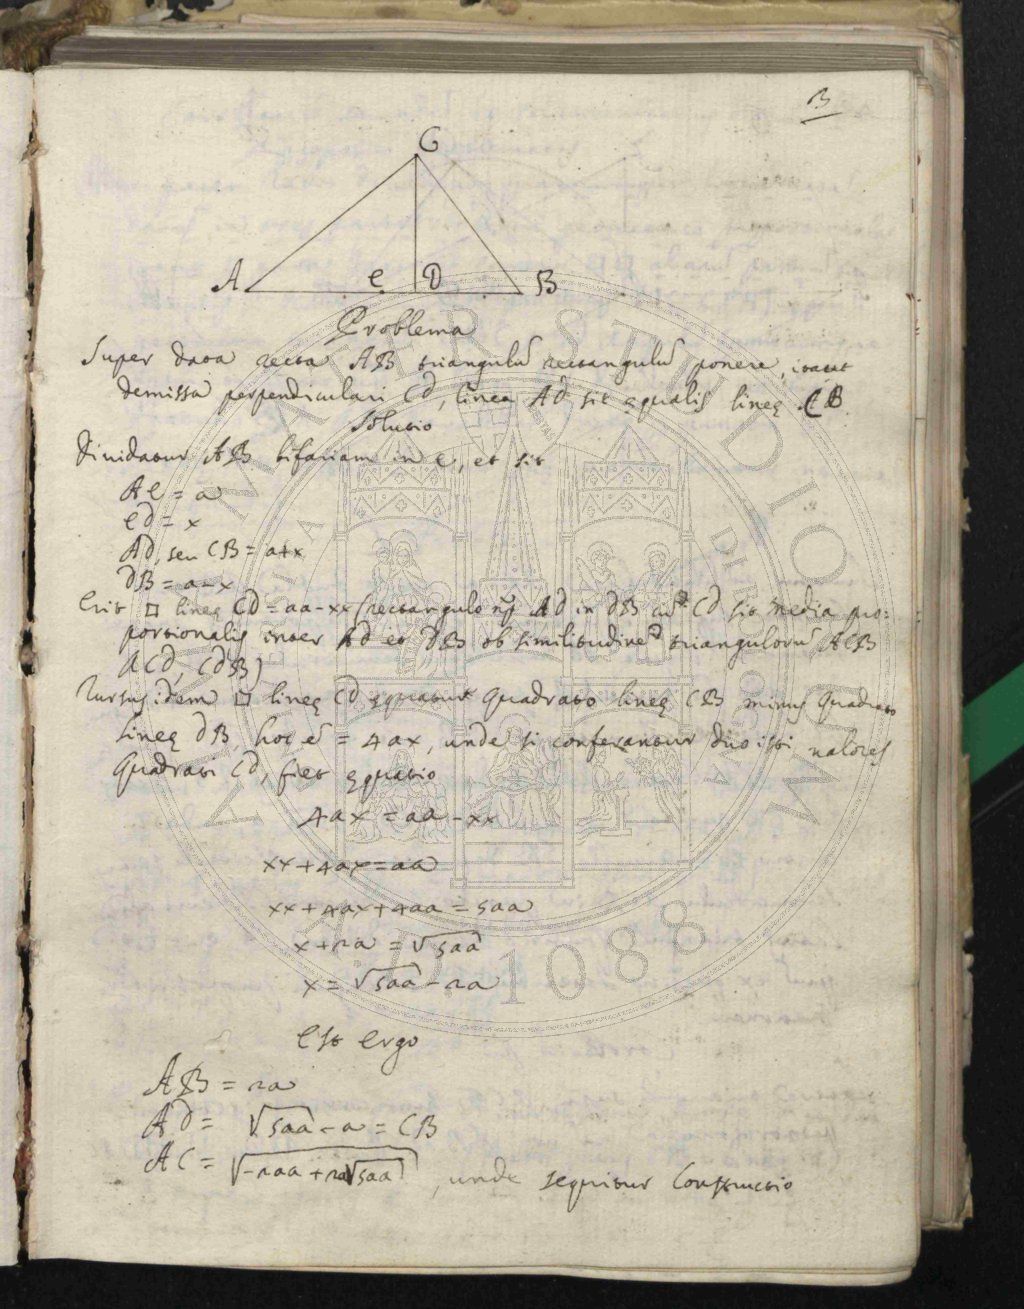 B
C
A e D B
Problema
Super data recta AB triangulũ rectangulũ ponere, itaut
demissa perpendiculari Cd, linea Ad sit ęqualis lineę CB
Solutio
Diuidatur AB bifariam in e, et sit
Ae = a
ed = x
Ad, seu CB = a+x
dB = a-x
Erit □ lineę Cd = aa-xx (rectangulo Ad in dB cũ Cd sit media pro:
portionalis inter Ad et dB ob similitudinẽ triangulorũ ACB
ACd, CdB)
Rursus idem □ lineę Cd ęquatur Quadrato lineę CB minus Quadrato
lineę dB, hoc ẽ = 4ax, unde si conferantur duo isti valores
Quadrati Cd, fiet ęquatio
4ax = aa-xx
xx+4ax=aa
xx+4ax+4aa=5aa
x+2a = √5aa
x = √5aa - 2a
Est ergo
AB = 2a
Ad = √5aa - a = CB
AC = √-2aa+2a√5aa , unde sequitur Constructio
ALMA MATER STUDIORUM
A.D. 1088